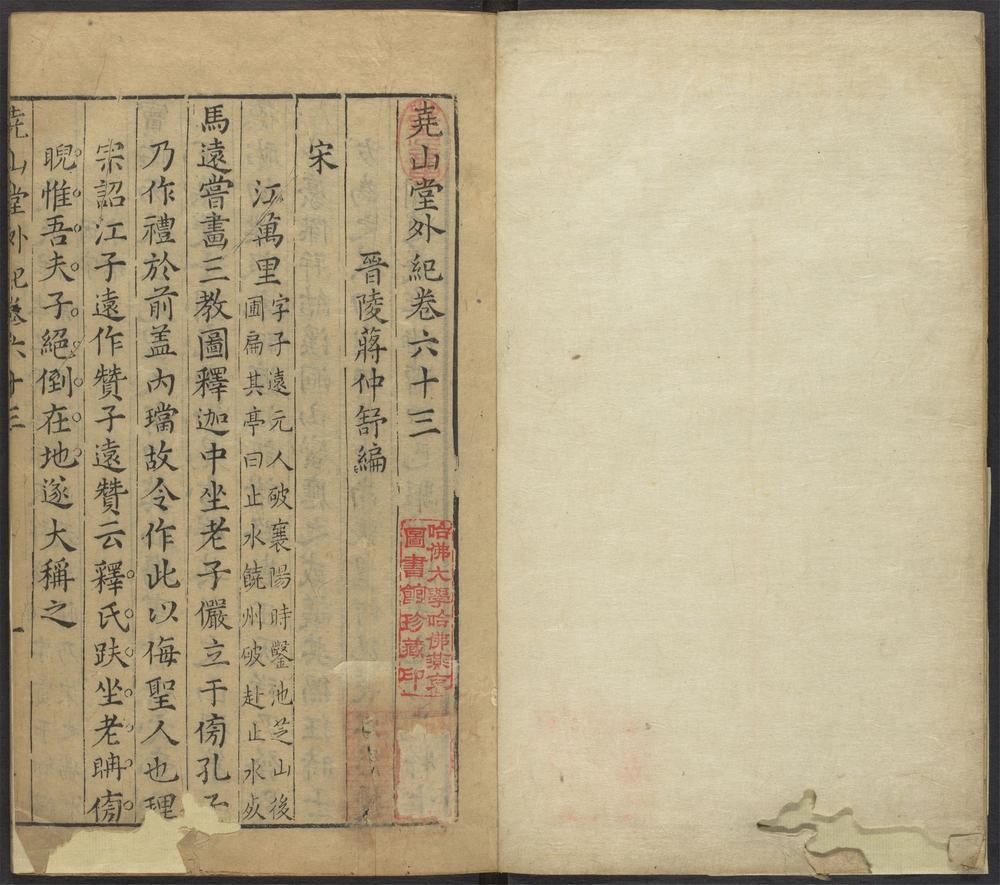 堯山堂外紀卷六十三
晉陵蔣仲舒編
宋
江萬里
字子遠元人破襄陽時鑿池芝山後
圃扁其亭曰止水饒州破赴止水死
馬遠嘗畫三教圖釋迦中坐老子儼立于傍孔子
乃作禮於前盖內璫故令作此以侮聖人也理
宋詔江子遠作贊子遠贊云釋氏趺坐老聃傍
睨惟吾夫子絕倒在地遂大稱之
堯山堂外紀卷六十三
一
哈佛大學哈佛燕京
圖書館珍藏印